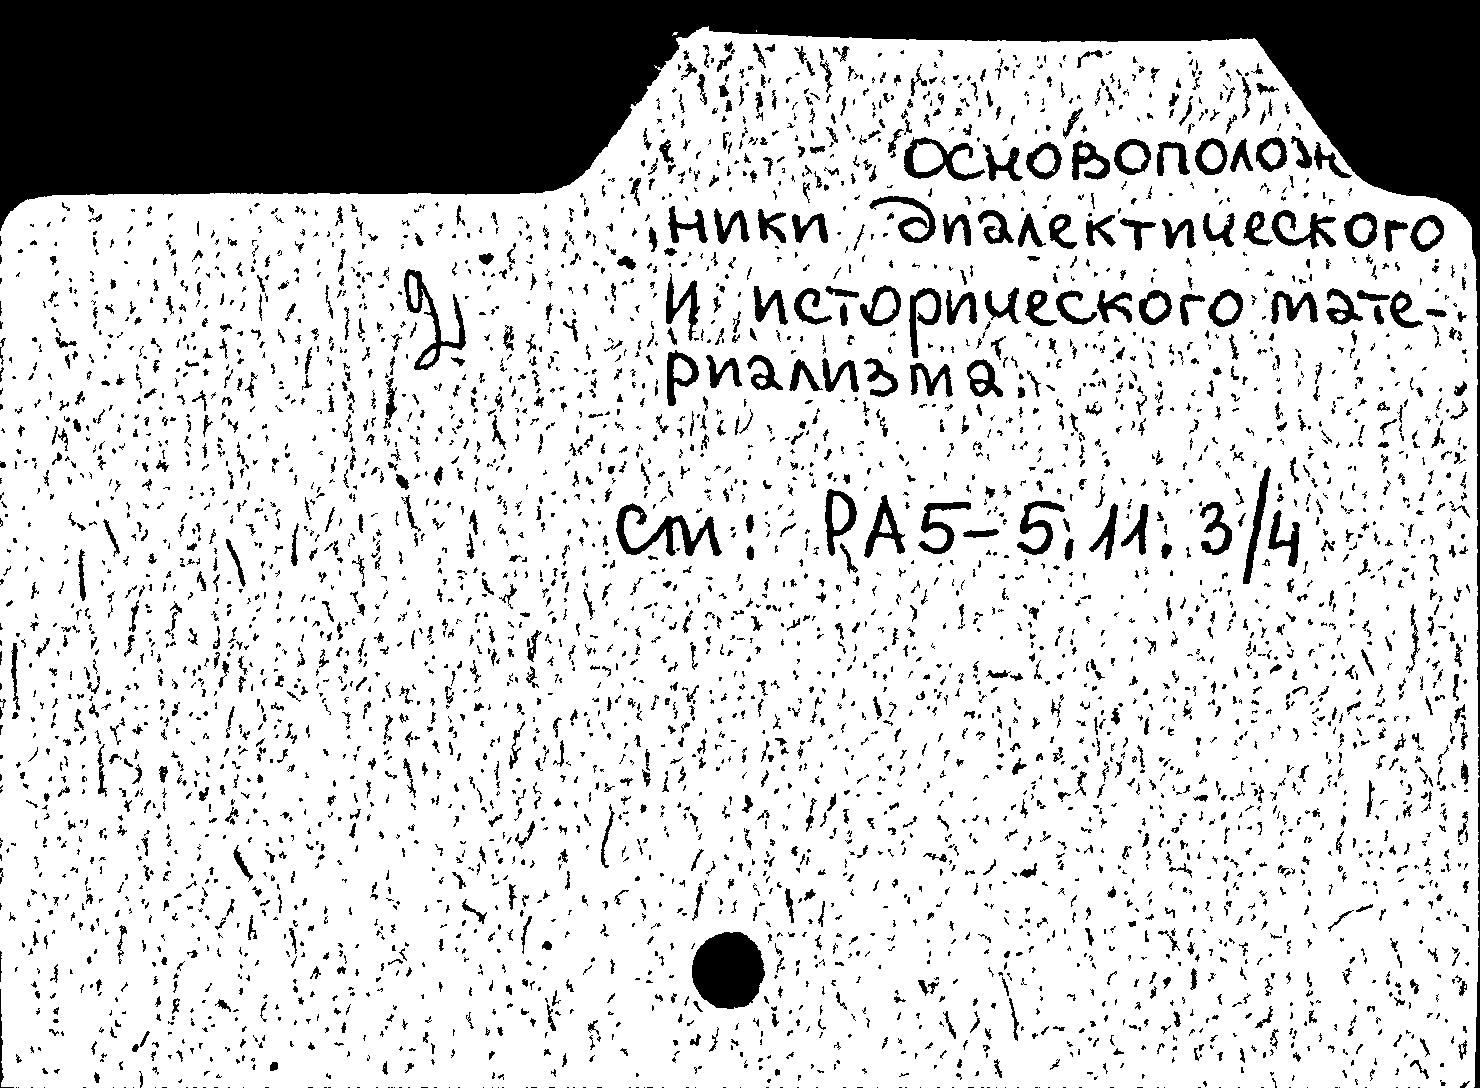 Основополож
ники диалектического
и исторического мате-
риализма.
см: РА5-5.11.3/4